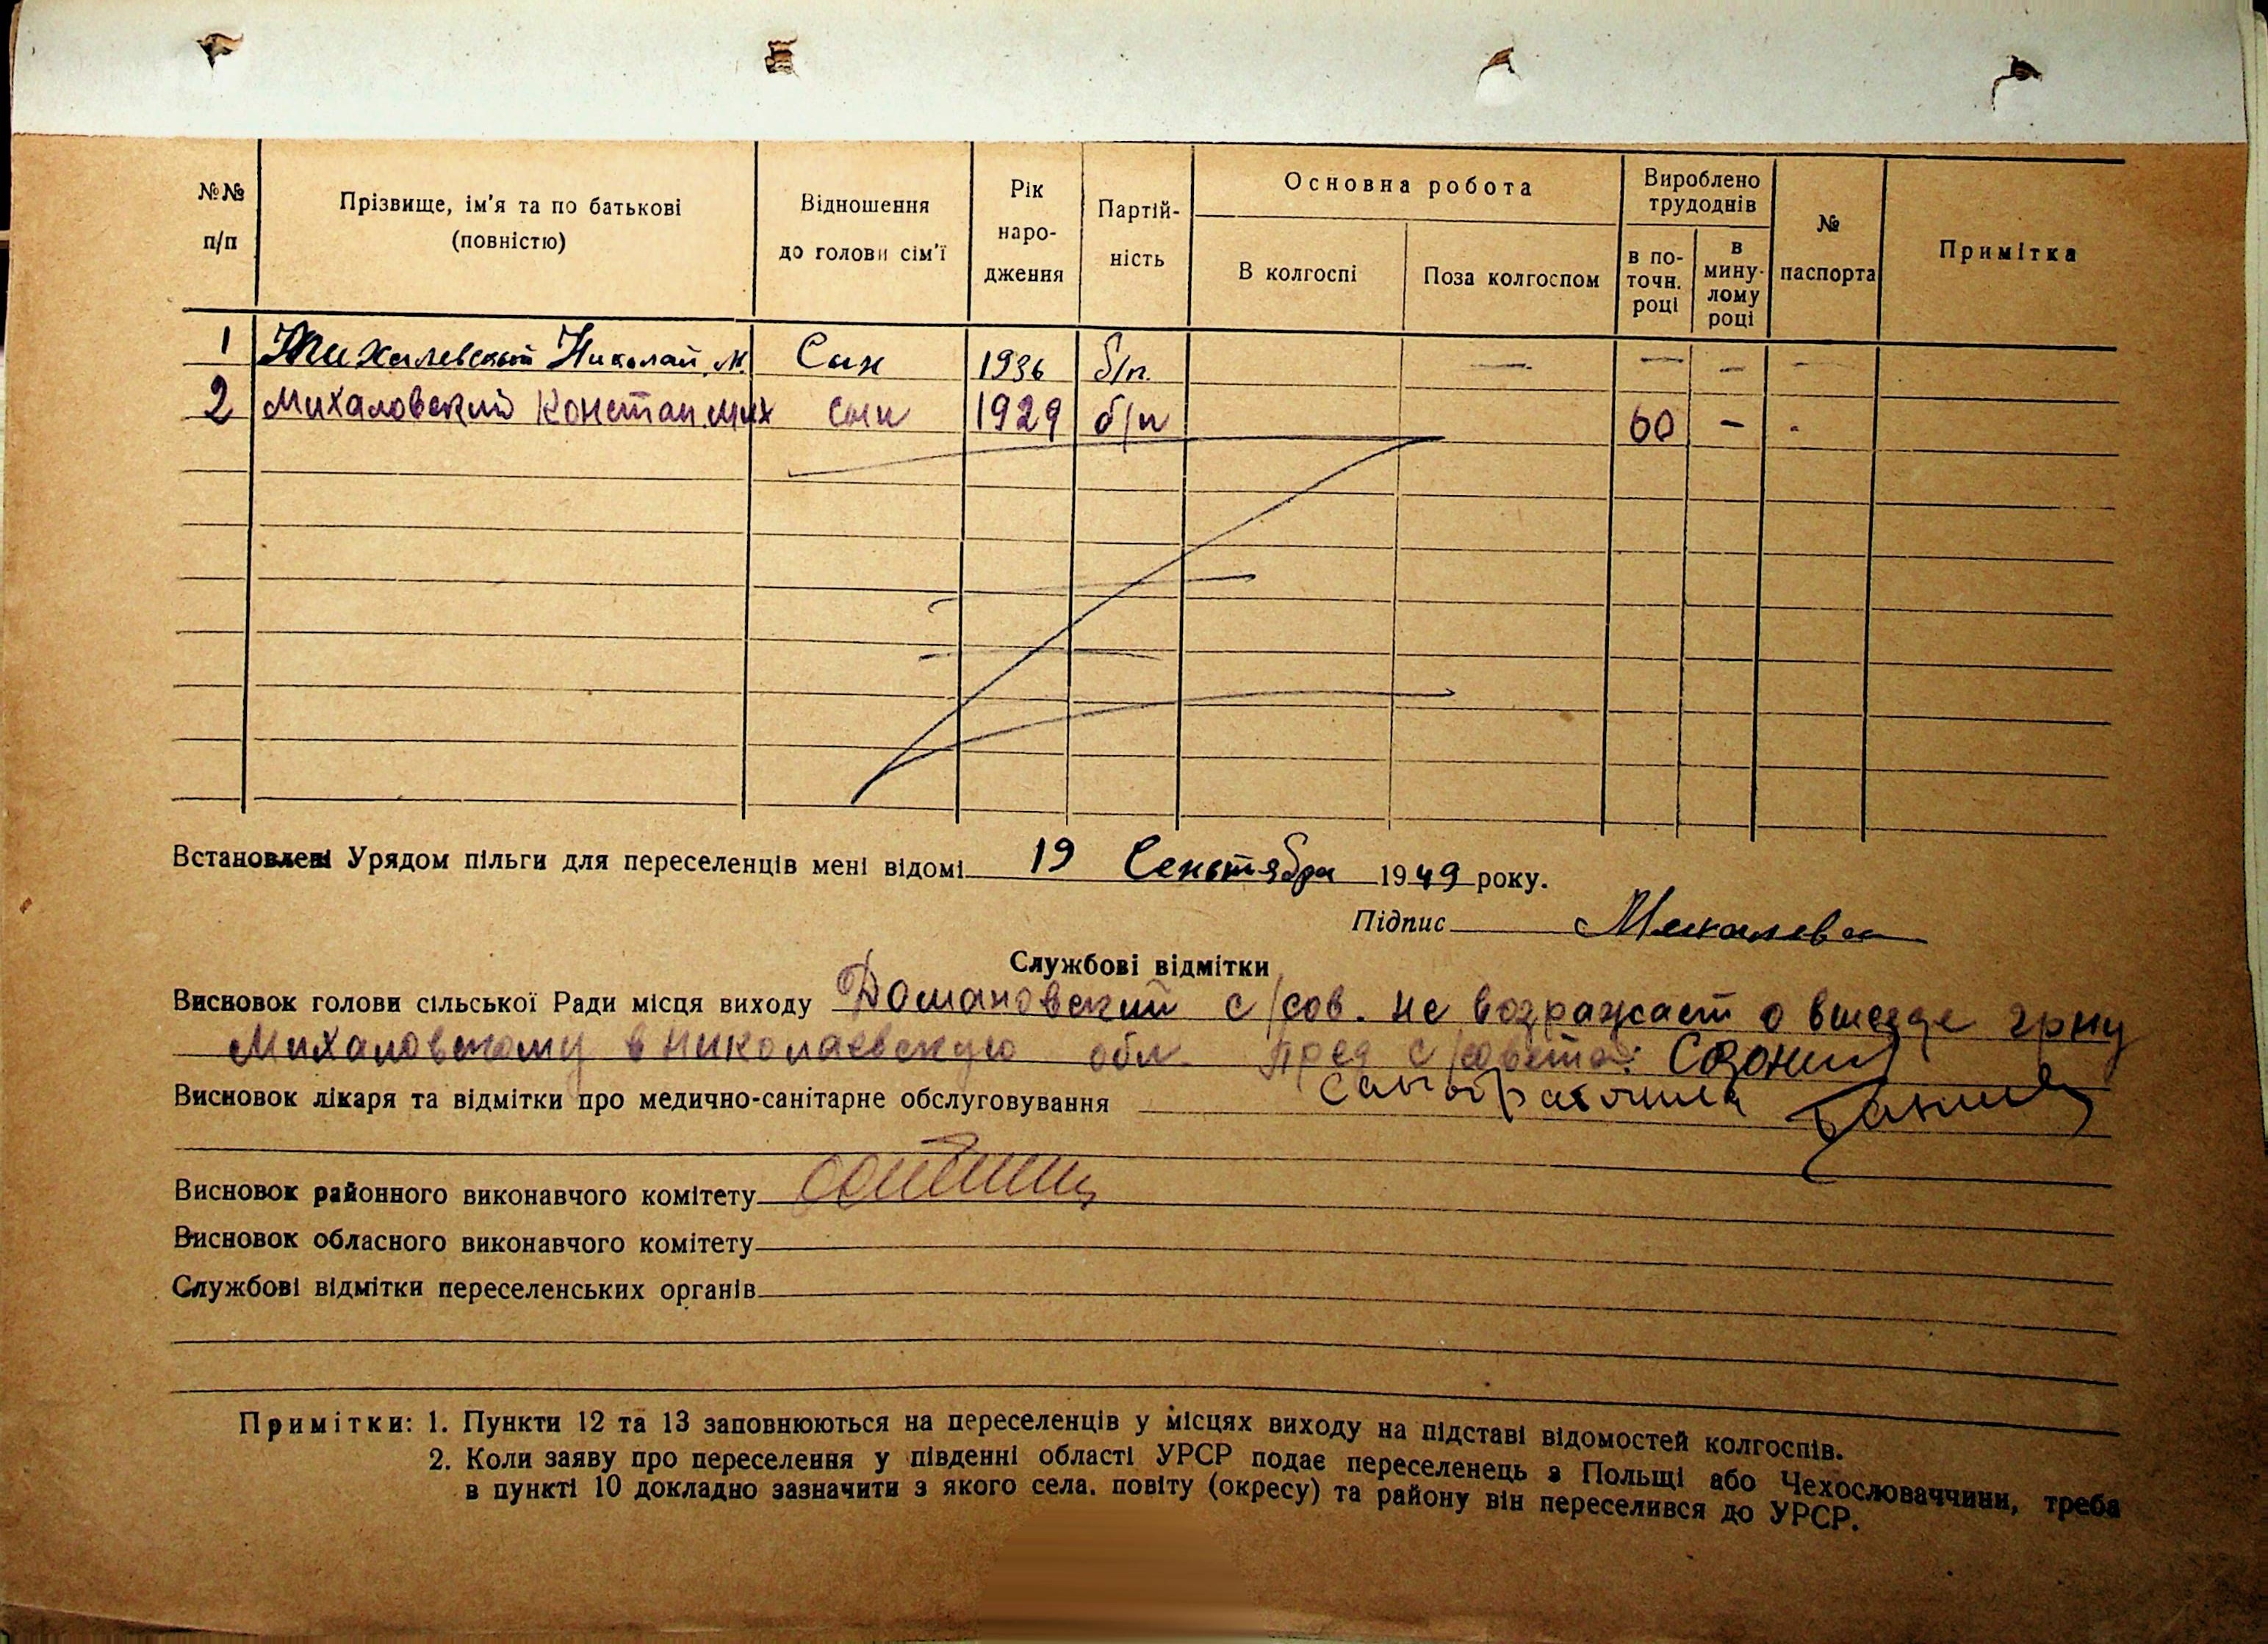 №№ п/п | Прізвище, ім'я та по батькові (повністю) | Відношення до голови сім'ї | Рік наро-дження | Партій-ність | Основна робота | Вироблено трудоднів | № паспорта | Примітка
В колгоспі | Поза колгоспом | в по-точн. році | в мину-лому році
1 Михалевский Николай М. Сын 1936 б/п. — — — -
2 Михаловский Констан Мих сын 1929 б/п 60 - -
Встановлені Урядом пільги для переселенців мені відомі 19 Сентября 1949 року.
Підпис
Службові відмітки
Висновок голови сільської Ради місця виходу Домановский с/сов. не возражает о выезде грну
Михаловскому в Николаевскую обл. Пред с/совета:
Висновок лікаря та відмітки про медично-санітарне обслуговування
Висновок районного виконавчого комітету
Висновок обласного виконавчого комітету
Службові відмітки переселенських органів
Примітки: 1. Пункти 12 та 13 заповнюються на переселенців у місцях виходу на підставі відомостей колгоспів.
2. Коли заяву про переселення у південні області УРСР подає переселенець з Польщі або Чехословаччини, треба
в пункті 10 докладно зазначити з якого села. повіту (окресу) та району він переселився до УРСР.